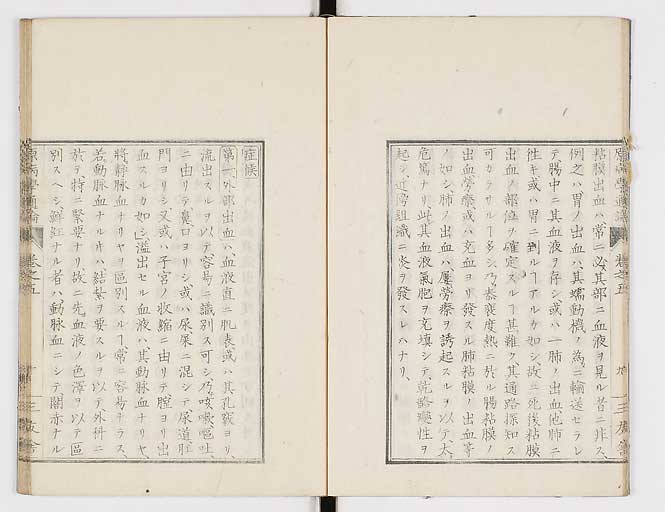 粘膜出血ハ常ニ必其部ニ血液ヲ見ル者ニ非ス、
例之ハ胃ノ出血ハ、其蠕動機ノ為ニ輸送セラレ
テ腸中ニ其血液ヲ存シ或ハ一肺ノ出血他肺ニ
往キ或ハ胃ニ到ルヿアルカ如シ故ニ死後粘膜
出血ノ部位ヲ確定スルヿ甚難ク其通路探知ス
可カラサルヿ多シ乃蓐窒扶斯ニ於ル腸粘膜ノ
出血勞瘵或ハ充血ヨリ發スル肺粘膜ノ出血等
ノ如シ、肺ノ出血ハ屢勞瘵ヲ誘起スルヲ以テ、太
危篤ナリ此其血液氣胞ヲ充填シテ、乾酪變性ヲ
起シ、近傍組織ニ炎ヲ發スレハナリ、
原病學通論
卷之五
三友舍
症候
第一外部出血ハ、血液直ニ肌表或ハ其孔竅ヨリ、
流出スルヲ以テ容易ニ識別ス可シ乃咳嗽嘔吐
ニ由リテ鼻口ヨリシ或ハ尿屎ニ混シテ尿道肛
門ヨリシ又或ハ子宮ノ收縮ニ由リテ腟ヨリ出
血スルカ如シ溢出セル血液ハ其動脉血ナリヤ、
將靜脉血ナリヤヲ區別スルヿ常ニ容易ナラス、
若動脉血ナルキハ結紮ヲ要スルヲ以テ外科ニ
於テ特ニ緊要ナリ故ニ先血液ノ色澤ヲ以テ區
別スヘシ鮮紅ナル者ハ動脉血ニシテ闇赤ナル
原病學通論
卷之五
三友舍